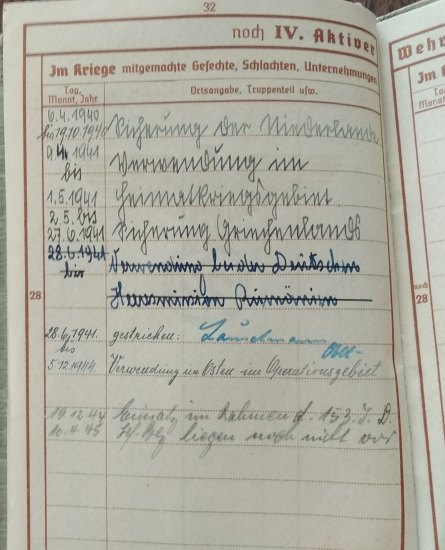 32
noch IV. Aktiver
Im Kriege mitgemachte Gefechte, Schlachten, Unternehmungen
Tag, Monat, Jahr
Ortsangabe, Truppenteil usw.
6.4.1940 Sicherung der Niederlande
bis 19.10.1940
9.4.1941 Verwendung im
bis
1.5.1941 Heimatkriegsgebiet
2.5. bis Sicherung Griechenlands
27.6.1941
28.6.1941 Verwendung bei der Deutschen
bis
Heeresmission Rumänien
28
28.6.1941. gestrichen:
bis
5.12.1944. Verwendung im Osten im Operationsgebiet
19.12.44 Einsatz im Rahmen d. 153. J. D.
10.4.45 liegen noch nicht vor
Wehr
Im
Ta
Monat
noch
28